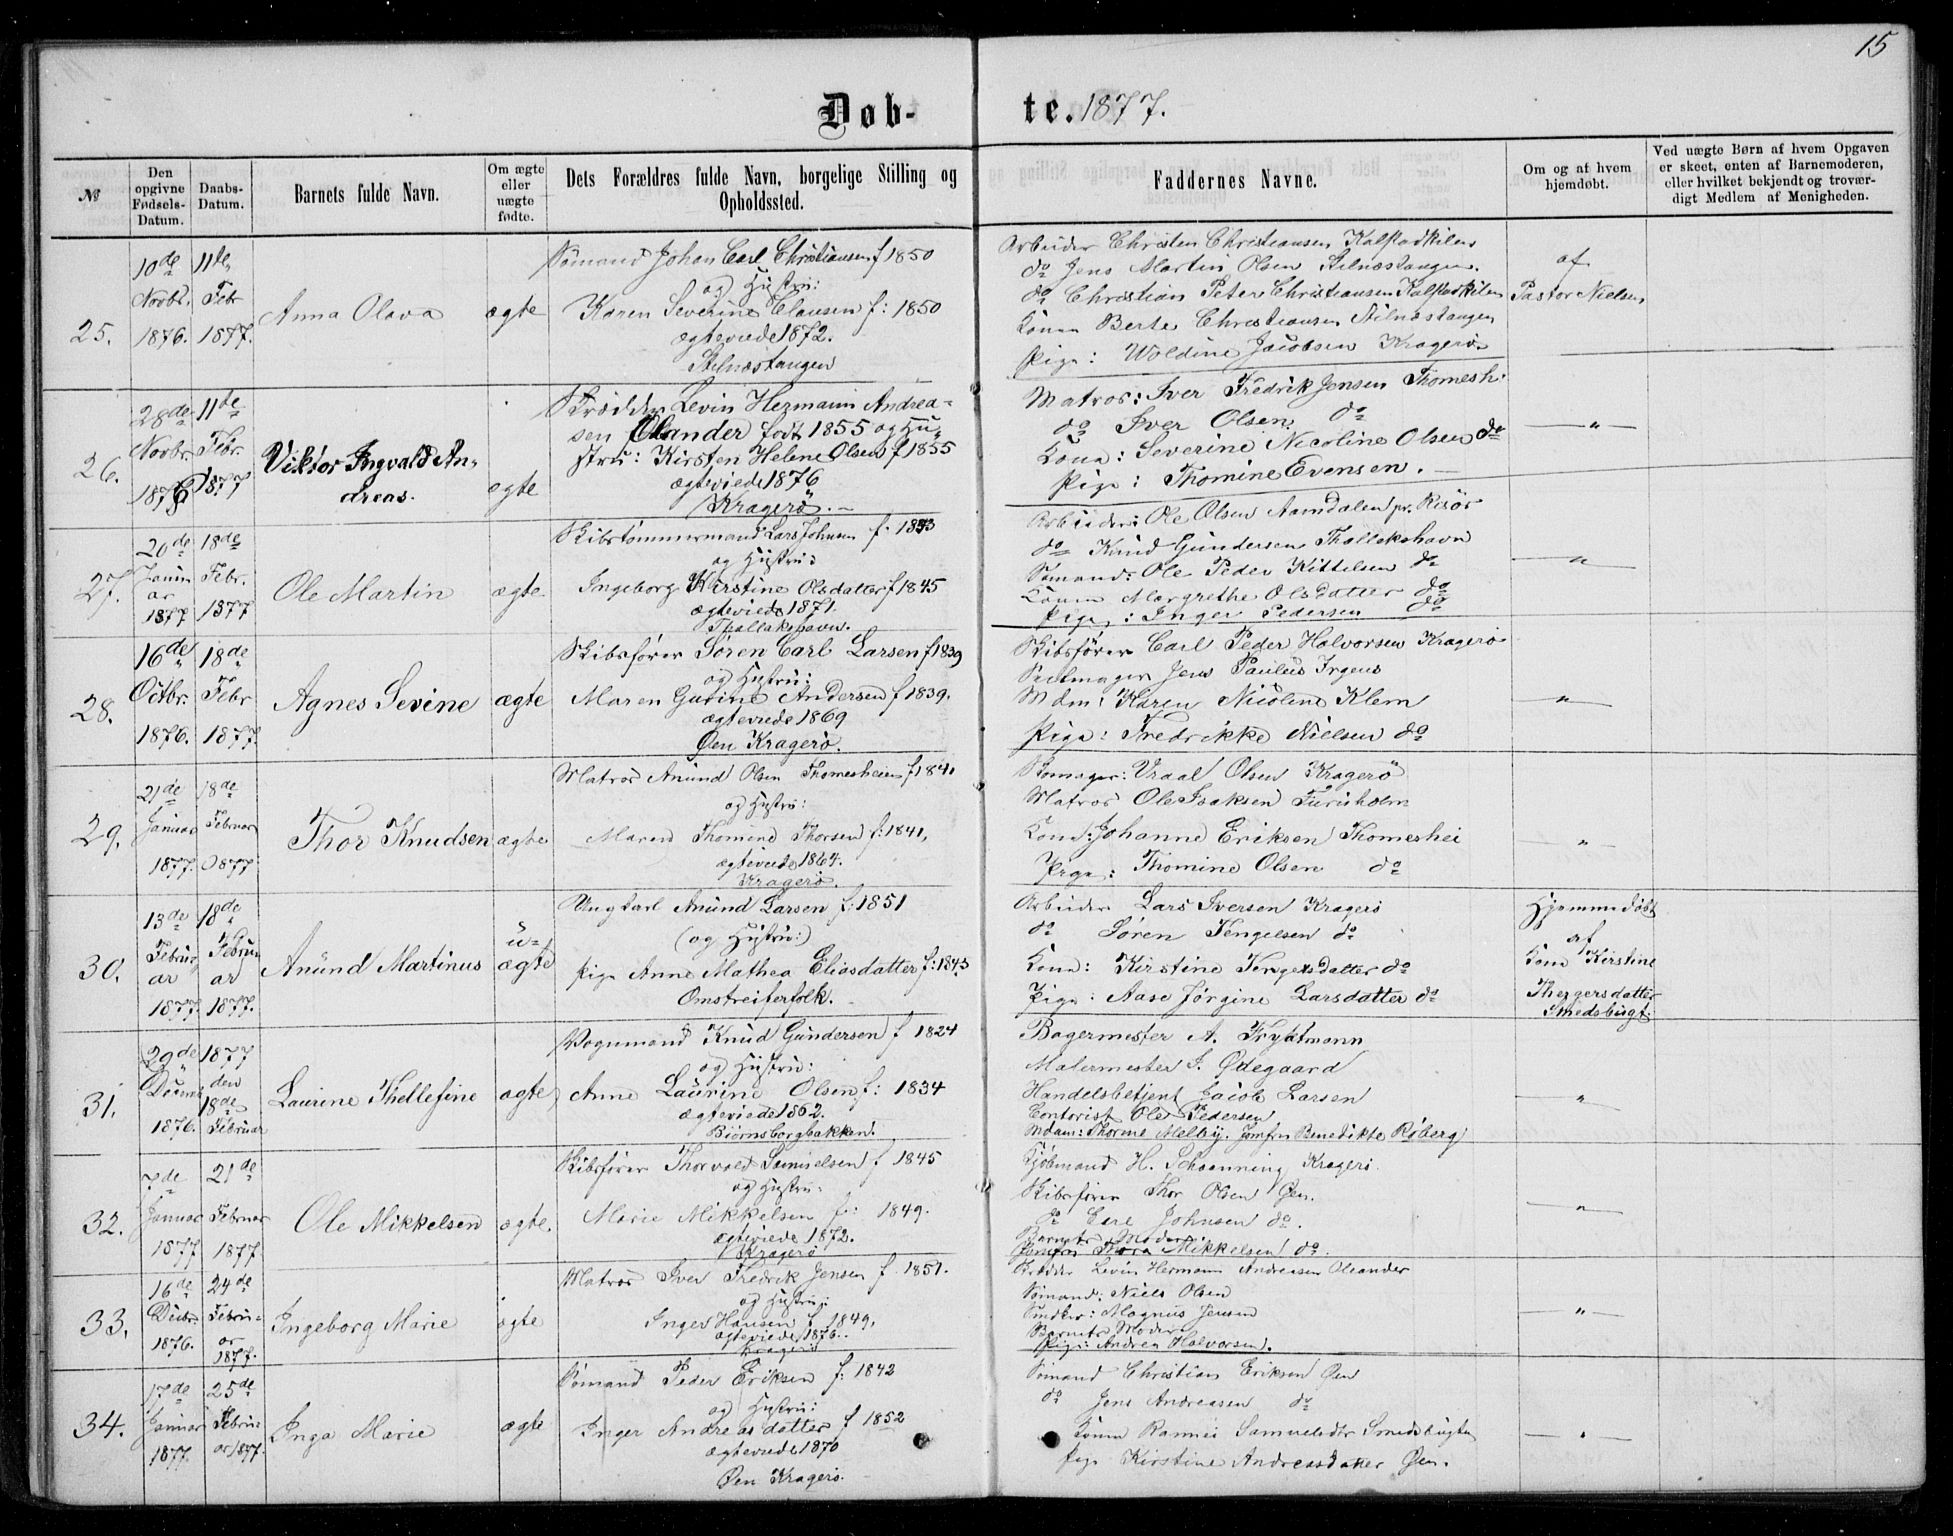 15
Døb-te. 1877.
№
Den opgivne Fødsels-Datum.
Daabs-Datum.
Barnets fulde Navn.
Om ægte eller uægte fødte.
Dets Forældres fulde Navn, borgelige Stilling og Opholdssted.
Faddernes Navne.
Om og af hvem hjemdøbt.
Ved uægte Børn af hvem Opgaven er skeet, enten af Barnemoderen, eller hvilket bekjendt og troværdigt Medlem af Menigheden.
25.
10de Novbr. 1876.
11te Febr 1877.
Anna Olava
ægte
Sömand Johan Carl Christiansen f 1850
og Hustru:
Karen Severine Clausen f: 1850
ægteviede 1872.
Stilnæstangen
Arbeider Christen Christiansen Kalstadkilen
do Jens Martin Olsen Stilnæstangen.
do Christian Peter Christiansen Kalstadkilen
Konen Berte Christiansen Stilnæstangen
Pige: Woldine Jacobsen Kragerö.
af
Pastor Nielsen
26.
28de Novbr. 1876
11de Febr. 1877
Viktor Ingvald An-
dreas.
ægte
Skrædder Levin Hermann Andrea-
sen Oleander født 1855 og Hu-
stru: Kirsten Helene Olsen f 1855
ægteviede 1876
Kragerö.
Matros: Iver Fredrik Jensen Thomesh.
do Iver Olsen do
Kona: Severine Nicoline Olsen do
Pige: Thomine Evensen.
"
27.
20de Januar 1877
18de Febr. 1877
Ole Martin
ægte.
Skibstømmermand Lars Johnsen f. 1843
og Hustru:
Ingeborg Kirstine Olsdatter f 1845
ægteviede 1871.
Thallakshavn.
Arbeider: Ole Olsen Aamdalen pr. Risör
do Knud Gundersen Thallakshavn
Sömand: Ole Peder Kittelsen do
Konen Margrethe Olsdatter do
Pige: Inger Pedersen do
"
28.
16de Octbr. 1876.
18de Febr 1877.
Agnes Sevine
ægte
Skibsfører Søren Carl Larsen f 1839
og Hustru:
Maren Gurine Andersen f 1839.
ægteviede 1869
Øen Kragerö.
Skibsfører Carl Peder Halvorsen Kragerö
Seilmager Jens Paulus Irgens
Mdm: Karen Nicoline Klem
Pige: Fredrikke Nielsen do
"
29.
21de Januar 1877.
18de Februar 1877
Thor Knudsen
ægte
Matros Anund Olsen Thomesheien f 1841
og Hustru:
Maren Thomine Thorsen f: 1841,
ægteviede 1864.
Kragerö.
Skomager: Vraal Olsen Kragerö
Matros Ole Isaksen Furuholm
Kona: Johanne Eriksen Thomeshei
Pige: Thomine Olsen do
"
30.
13de Februar 1877.
18de Februar 1877.
Anund Martinus
u-
ægte
Ungkarl Anund Larsen f: 1851
(og Hustru:)
Pige Anne Mathea Eliasdatter f: 1845
Omstreiferfolk.
Arbeider Lars Iversen Kragerö
do Søren Tengelsen do
Kona: Kirstine Tengelsdatter do
Pige: Aase Jørgine Larsdatter do
Hjemmedøbt
af
Kona Kirstine
Thergersdatter
Smedsbugt.
31.
29de Decmb. 1876.
1877 den 18de Februar
Laurine Thellefine
ægte
Vognmand Knud Gundersen f 1824
og Hustru:
Anne Laurine Olsen f: 1834
ægteviede 1862.
Biørnsborgbakken.
Bagermester A. Tryktmann
Malermester J. Ødegaard
Handelsbetjent Jacob Larsen
Contorist Ole Pedersen
Mdam: Thorine Melby. Jomfru Benedikte Røberg
"
32.
7de Januar 1877
21de Februar 1877
Ole Mikkelsen
ægte.
Skibsfører Thorvald Samuelsen f 1845
og Hustru:
Marie Mikkelsen f: 1849.
ægteviede 1872.
Kragerö
Kjöbmand H. Schanning Kragerö.
Skibsfører Thor Olsen Øen.
do Carl Johnsen do.
Barnets Moder
Jomfru Thora Mikkelsen do.
"
33.
16de Decbr. 1876.
24de Februar 1877.
Ingeborg Marie
ægte
Matros Iver Fredrik Jensen f. 1851.
og Hustru:
Inger Hansen f 1849.
ægteviede 1876.
Kragerö
Skrædder Levin Hermann Andreasen Oleander
Sömand: Niels Olsen
Snedker: Magnus Jensen
Barnets Moder
Pige: Andrea Halvorsen.
"
34.
17de Januar 1877.
25de Februar 1877.
Inga Marie
ægte
Sömand Peder Eriksen f: 1842
og Hustru:
Inger Andreasdatter f 1852
ægteviede 1870
Øen Kragerö.
Sömand Christian Eriksen Øen
do Jens Andreasen do
Konen Rannei Samuelsdtr Smedsbugten
Pige Kirstine Andreasdatter Øen.
"